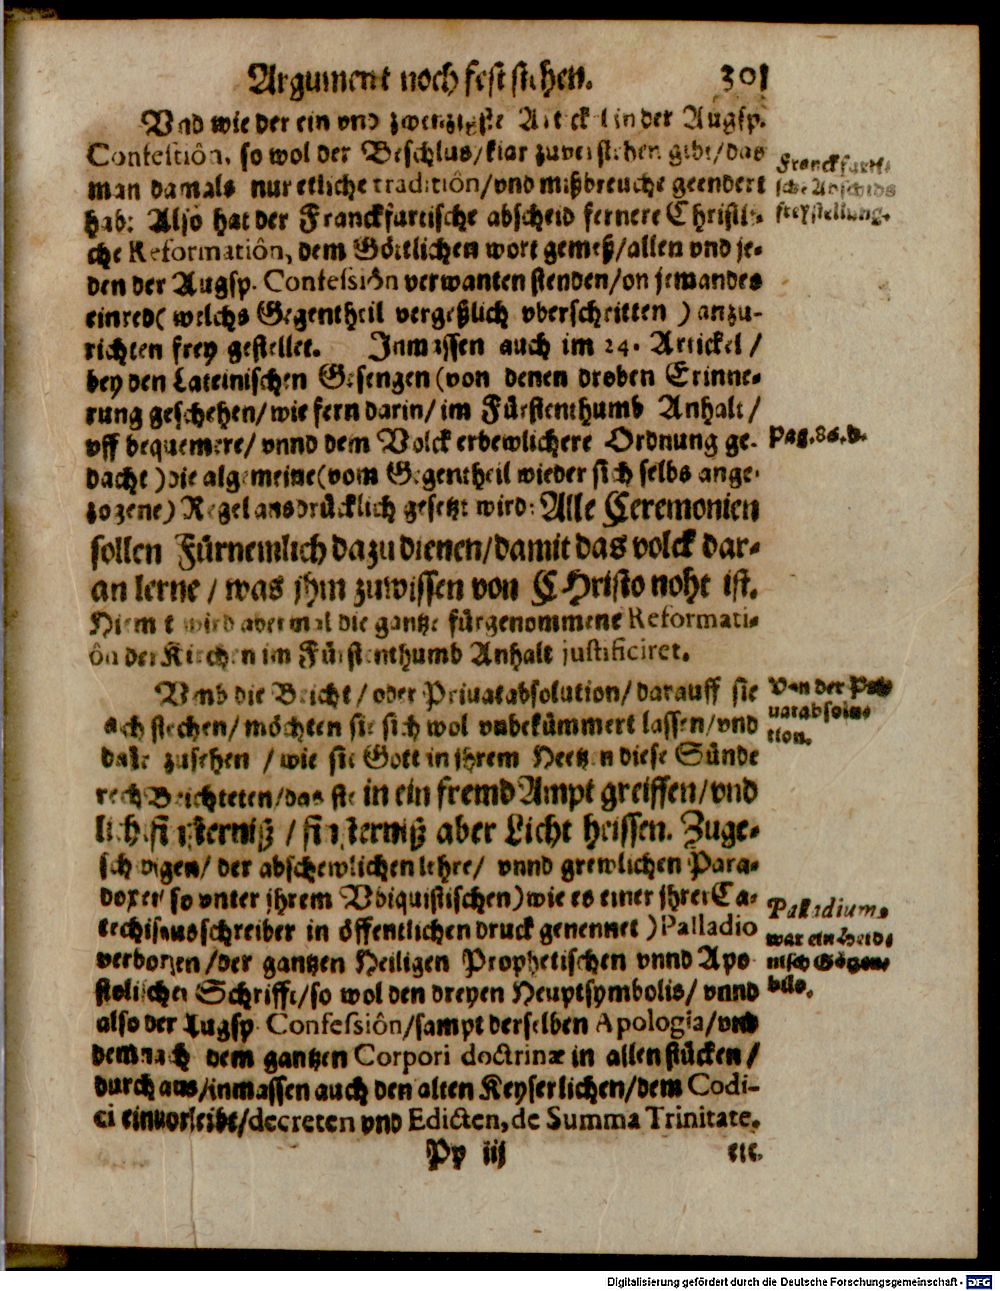 Argument noch fest stehen. 301
Vnd wie der ein vnd zwentzigste Artickel in der Augsp.
Confeſſiôn, so wol der Beschlus/klar zuverstehen gibt/das
man damals nur etliche traditiôn/vnd mißbreuche geendert
hab: Also hat der Franckfurtische abscheid fernere Christli-
che Reformatiôn, dem Göttlichen wort gemeß/allen vnd je-
den der Augsp. Confeſſiôn verwanten stenden/on jemandes
einred( welchs Gegentheil vergeßlich vberschritten ) anzu-
richten frey gestellet. Inmassen auch im 24. Artickel /
bey den Lateinischen Gesengen (von denen droben Erinne-
rung geschehen/wie fern darin/im Fürstenthumb Anhalt/
vff bequemere/ vnnd dem Volck erbewlichere Ordnung ge-
dacht ) die algemeine(vom Gegentheil wieder sich selbs ange-
zogene) Regel ausdrücklich gesetzt wird: Alle Ceremonien
sollen Fürnemlich dazu dienen/damit das volck dar-
an lerne / was jhm zuwissen von CHristo noht ist.
Hiemit wird abermal die gantze fürgenommene Reformati-
ôn der Kirchen im Fürstenthumb Anhalt justificiret.
Vnnd die Beicht / oder Priuatabsolution/ darauff sie
ach stechen/ möchten sie sich wol vnbekümmert lassen/vnd
dafür zusehen / wie sie Gott in jhrem Hertzen diese Sünde
recht Beichteten/das sie in ein fremd Ampt greiffen/vnd
licht finsterniß / finsterniß aber Licht heissen. Zuge-
schweigen/ der abschewlichen lehre/ vnnd grewlichen Para-
doxen so vnter jhrem Vbiquistischen)wie es einer jhrer Ca-
techismusschreiber in öffentlichen druck genennet )Palladio
verborgen/der gantzen Heiligen Prophetischen vnnd Apo-
stolischen Schrifft/so wol den dreyen Heuptsymbolis/ vnnd
also der Augsp. Confeſſiôn/sampt derselben Apologia/vnd
demnach dem gantzen Corpori doctrinæ in allen stücken/
durch aus/inmassen auch den alten Keyserlichen/dem Codi-
ci einvorleibt/decreten vnd Edicten, de Summa Trinitate.
Pp iij etc.
Franckfurti-
sche Abschieds
freystellung.
Pag.86.b.
Von der Pri-
uatabsolu-
tion.
Palladium.
war ein Heid-
nisch Götzen-
bild.
Digitalisierung gefördert durch die Deutsche Forschungsgemeinschaft - DFG